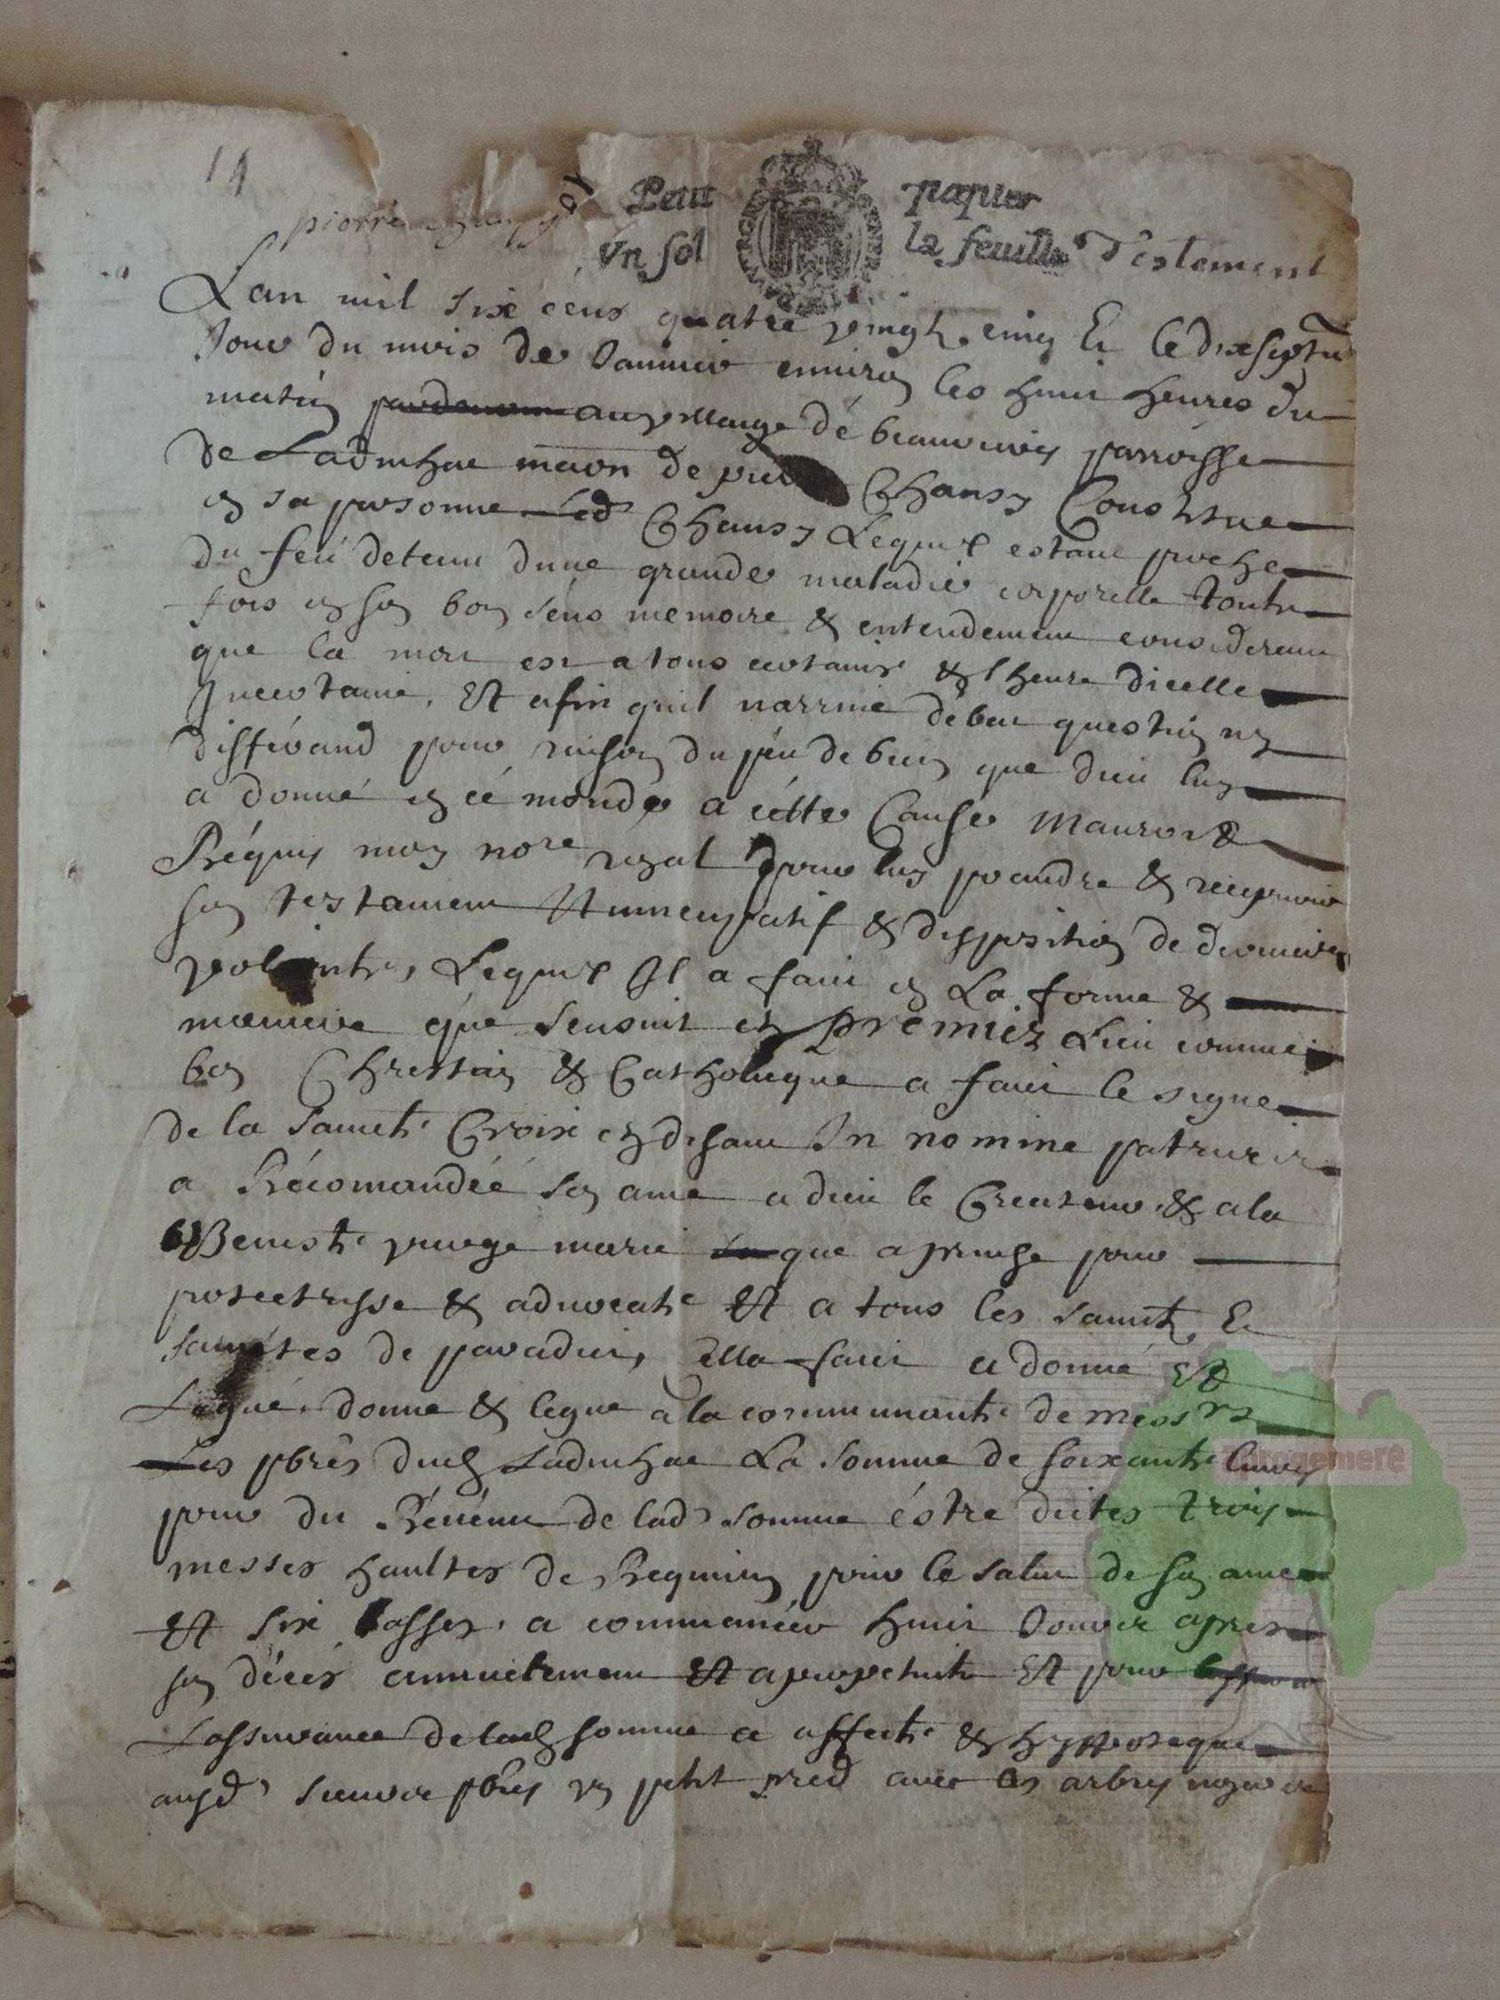 14
pierre
Petit papier
Vn sol la feuille
Testement
Lan mil six cens quatre vingh cinq Et le dixseptie
Jour du mois de Janvier enuiron les huit heures du
matin au vilaige de beauvoir parroisse
de Ladinhac maison de pierre Chansy Constitue
en sa personne led Chansy Lequel estant proche
du feu detenu dune grande maladie corporelle toute
fois en son bon sens memoire & entendement considerant
que la mort est a tous certaine & lheure dicelle
Incertaine, Et afin quil narrive debat question ny
differand pour raison du peu de bien que dieu luy
a donné en cé monde a cette Cause Mauroit
Réquis moy nore royal pour luy prandre & recepvoir
son testament Nuncupatif & disposition de derniere
volonte, Lequel Il a fait en La forme &
maniere que sensuit en premier Lieu comme
bon Chrestien & Catholicque a fait le signe
de la sainte Croix en disant In nomine patris
a Récomandéé son ame a dieu le Createur & a la
Benoiste vierge marie que a prinse pour
protectrisse & advocate Et a tous les saints Et
saintes de paradis, a donné Et
Legué, donne & legue a la communaute de messrs
Les pbrés dud Ladinhac La somme de soixante livres
pour du Révénu de lad somme éstre dites trois
messes haultes de Requiem pour le salut de son ame
Et six basses, a commancer huit Jours apres
son décés annuelement Et a perpetuité Et pour
Lassurance de lad somme a affecté & hyppoteque
ausd sieurs pbrés un petit pred avec les arbres
Geneanet